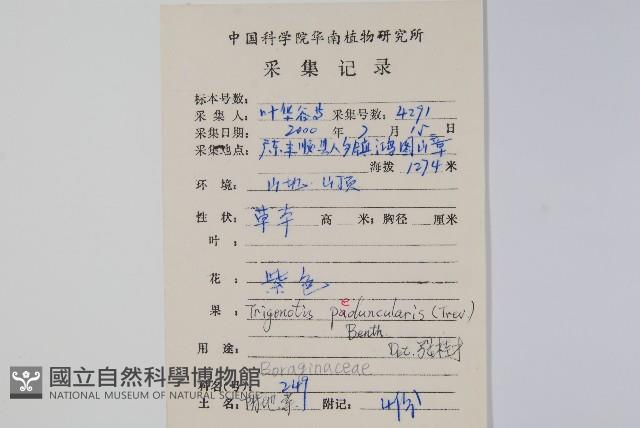 中国科学院华南植物研究所
采集记录
标本号数:
采集人: 叶华谷等 采集号数: 4291
采集日期: 2000 年 7 月 15 日
采集地点: 广东丰顺县 镇鸿图山
海拔 1274 米
环境: 山地.山顶
性状: 草本 高 米; 胸径 厘米
叶:
花: 紫色
果: Trigonotis peduncularis (Trev)
Benth.
用途: Det.
Boraginaceae
249
土名: 附地菜 附记: 4份
國立自然科學博物館
NATIONAL MUSEUM OF NATURAL SCIENCE